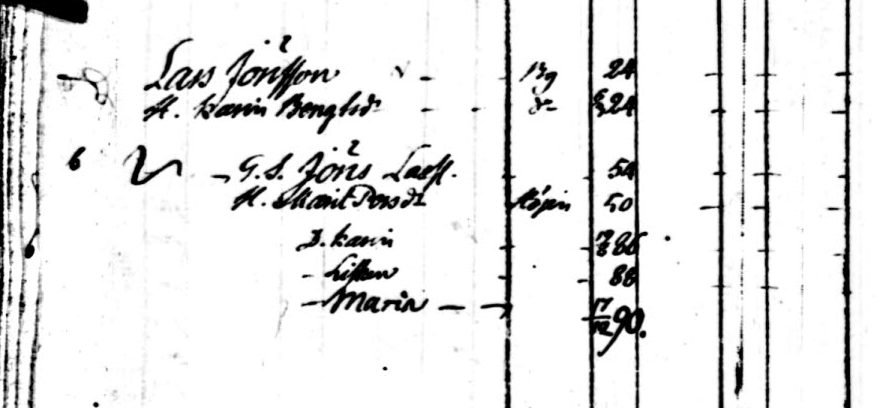 Lars Jönsson Bg 24
H. Karin Bengtsdr dr 24
6 G. S. Jöns Larss. 54
H. Marit Persdr 50
D. Karin 86
- Lisken 88
- Maria — 17/12 90.